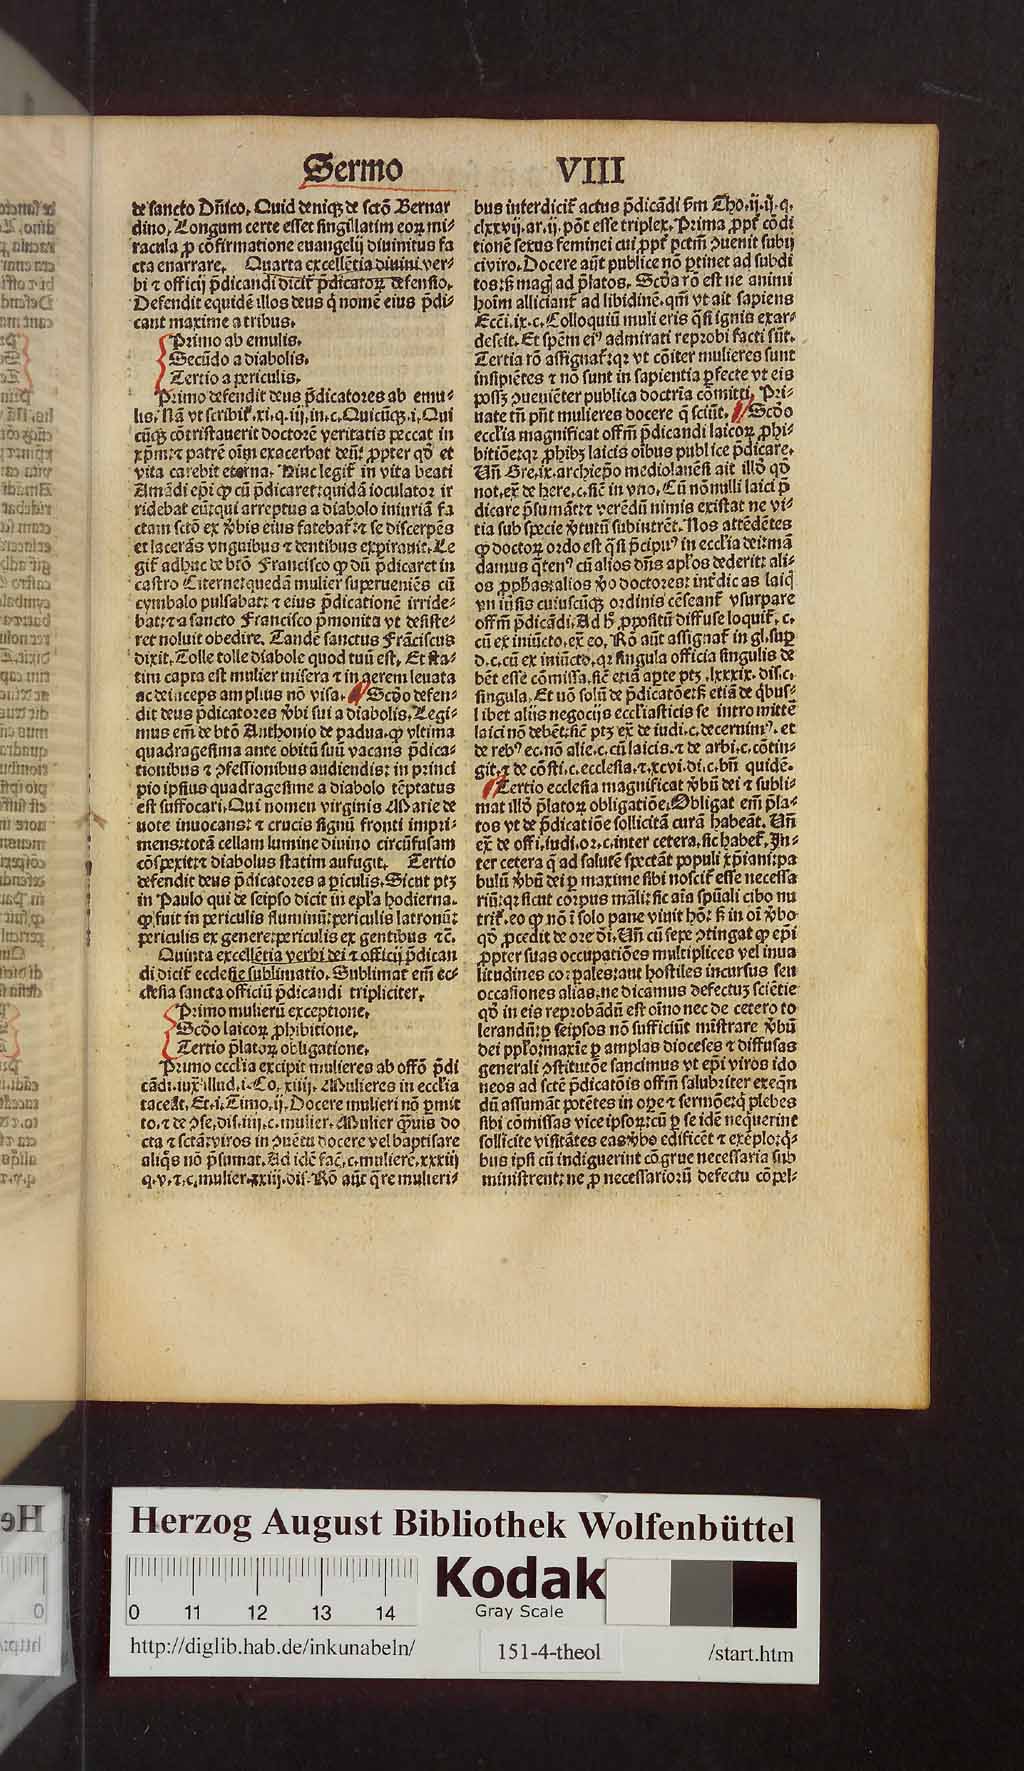 Sermo VIII
de sancto Dñico. Quid deniqꝫ de sctō Bernar
dino. Longum certe esset singillatim eoꝝ mi-
racula ꝓ cōfirmatione euangelij diuinitus fa
cta enarrare. Quarta excellētia diuini ver-
bi ⁊ officij p̄dicandi dicit̄ p̄dicatoꝝ defensio.
Defendit equidē illos deus q̄ nomē eius p̄di-
cant maxime a tribus.
Primo ab emulis.
Secūdo a diabolis.
Tertio a periculis.
Primo defendit deus p̄dicatores ab emu-
lis. Nā vt scribit̄.xi.q.iij.in.c.Quicūqꝫ.i.Qui
cūqꝫ cōtristauerit doctorē veritatis peccat in
xp̄m:⁊ patrē oīm exacerbat deū: ꝓpter qđ et
vita carebit eterna. Hinc legit̄ in vita beati
Amādi ep̄i ꝙ cū p̄dicaret: quidā ioculator ir
ridebat eū: qui arreptus a diabolo iniuriā fa
ctam sctō ex v̄bis eius fatebat̄:⁊ se discerpēs
et lacerās vnguibus ⁊ dentibus expirauit. Le
git̄ adhuc de btō Francisco ꝙ dū p̄dicaret in
castro Citerne: quedā mulier superueniēs cū
cymbalo pulsabat: ⁊ eius p̄dicationē irride-
bat: ⁊ a sancto Francisco p̄monita vt desiste-
ret noluit obedire. Tandē sanctus Frāciscus
dixit. Tolle tolle diabole quod tuū est. Et sta-
tim capta est mulier misera ⁊ in aerem leuata
ac deinceps amplius nō visa. Scđo defen-
dit deus p̄dicatores v̄bi sui a diabolis. Legi-
mus em̄ de btō Anthonio de padua. ꝙ vltima
quadragesima ante obitū suū vacans p̄dica-
tionibus ⁊ ꝯfessionibus audiendis: in princi
pio ipsius quadragesime a diabolo tēptatus
est suffocari. Qui nomen virginis Marie de
uote inuocans: ⁊ crucis signū fronti impri-
mens: totā cellam lumine diuino circūfusam
cōspexit:⁊ diabolus statim aufugit. Tertio
defendit deus p̄dicatores a ꝑiculis. Sicut ptꝫ
in Paulo qui de seipso dicit in ep̄la hodierna.
ꝙ fuit in periculis fluminū: periculis latronū:
periculis ex genere: periculis ex gentibus ⁊c̄.
Quinta excellētia verbi dei ⁊ officij p̄dican
di dicit̄ ecclesie sublimatio. Sublimat em̄ ec-
clesia sancta officiū p̄dicandi tripliciter.
Primo mulierū exceptione.
Scđo laicoꝝ ꝓhibitione.
Tertio p̄latoꝝ obligatione.
Primo ecclīa excipit mulieres ab offō p̄di
cādi.iux̄ illud.i.Co.xiiij. Mulieres in ecclīa
taceāt. Et.i.Timo.ij. Docere mulieri nō ꝑmit
to.⁊ de ꝯse.dis.iiij.c.mulier. Mulier q̄uis do
cta ⁊ sctā: viros in ꝯuētu docere vel baptisare
aliq̄s nō p̄sumat. Ad idē fac̄.c.mulierē.xxxiij
q.v.⁊.c.mulier.xxiij.dis. Rō aūt q̄re mulieri-
bus interdicit̄ actus p̄dicādi ẜm Tho.ij.ij.q.
clxxvij.ar.ij.pōt esse triplex. Prima ꝓpt̄ cōdi
tionē sexus feminei cui ꝓpt̄ pctm̄ ꝯuenit subij
ci viro. Docere aūt publice nō ꝑtinet ad subdi
tos: sꝫ maḡ ad p̄latos. Scđa rō est ne animi
hoīm alliciant̄ ad libidinē. qm̄ vt ait sapiens
Ecc̄i.ix.c. Colloquiū mulieris q̄si ignis exar-
descit. Et spēm ei⁹ admirati reprobi facti sūt.
Tertia rō assignat̄: qꝛ vt cōiter mulieres sunt
insipiētes ⁊ nō sunt in sapientia ꝑfecte vt eis
possꝫ ꝯueniēter publica doctria cōmitti. Pri-
uate tn̄ pn̄t mulieres docere q̄ sciūt. Scđo
ecclīa magnificat offm̄ p̄dicandi laicoꝝ ꝓhi-
bitiōe: qꝛ ꝓhibꝫ laicis oībus publice p̄dicare.
Vn̄ Gre.ix.archiep̄o mediolanēsi ait illđ qđ
not.ex̄ de here.c.sic̄ in vno. Cū nōnulli laici p̄
dicare p̄sumāt:⁊ verēdū nimis existat ne vi-
tia sub specie v̄tutū subintrēt. Nos attēdētes
ꝙ doctoꝝ ordo est q̄si p̄cipu⁹ in ecclīa dei: mā
damus q̄ten⁹ cū alios dn̄s apl'os dederit: ali-
os ꝓph̄as: alios v̄o doctores: int̄dicas laicꝭ
vniūsis cuiuscūqꝫ ordinis cēseant̄ vsurpare
offm̄ p̄dicādi. Ad h̄ ꝓpositū diffuse loquit̄.c.
cū ex iniūcto.ex̄ eo. Rō aūt assignat̄ in gl.suꝑ
d.c.cū ex iniūcto.qꝛ singula officia singulis de
bēt esse cōmissa.sic̄ etiā apte ptꝫ.lxxxix.dis.c.
singula. Et uō solū de p̄dicatōe: sꝫ etiā de q̄bus-
libet aliis negocijs ecclīasticis se intromittē
laici nō debēt: sic̄ ptꝫ ex̄ de iudi.c.decernim⁹. et
de reb⁹ ec.nō alie.c.cū laicis.⁊ de arbi.c.cōtin-
git.⁊ de cōsti.c.ecclesia.⁊.xcvi.di.c.bn̄ quidē.
Tertio ecclesia magnificat v̄bū dei ⁊ subli-
mat illđ p̄latoꝝ obligatiōe. Obligat em̄ p̄la-
tos vt de p̄dicatiōe sollicitā curā habeāt. Vn̄
ex̄ de offi.iudi.or.c.inter cetera. sic habet̄. In-
ter cetera q̄ ad salutē spectāt populi xp̄iani: pa
bulū v̄bū dei ꝑmaxime sibi noscit̄ esse necessa
riū: qꝛ sicut corpus māli: sic aīa sp̄uali cibo nu
trit̄.eo ꝙ nō ī solo pane viuit hō: sꝫ in oī v̄bo
qđ ꝓcedit de ore dī. Vn̄ cū sepe ꝯtingat ꝙ ep̄i
ꝓpter suas occupatiōes multiplices vel inua
litudines corpales: aut hostiles incursus seu
occasiones alias. ne dicamus defectuꝫ sciētie
qđ in eis reprobādū est oīno nec de cetero to
lerandū: ꝑ seipsos nō sufficiūt mīstrare v̄bū
dei pplo: maxīe ꝑ amplas dioceses ⁊ diffusas
generali ꝯstitutōe sancimus vt ep̄i viros ido
neos ad sctē p̄dicatōis offm̄ salubriter exeqn̄
dū assumāt potētes in oꝑe ⁊ sermōe: q̄ plebes
sibi cōmissas vice ipsoꝝ: cū ꝑ se idē nequerint
sollicite visitātes eas v̄bo edificēt ⁊ exēplo: q̄-
bus ipsi cū indiguerint cōgrue necessaria sub
ministrent: ne ꝓ necessarioꝝ defectu cōpel-
Herzog August Bibliothek Wolfenbüttel
Kodak
Gray Scale
0 11 12 13 14
http://diglib.hab.de/inkunabeln/
151-4-theol
/start.htm